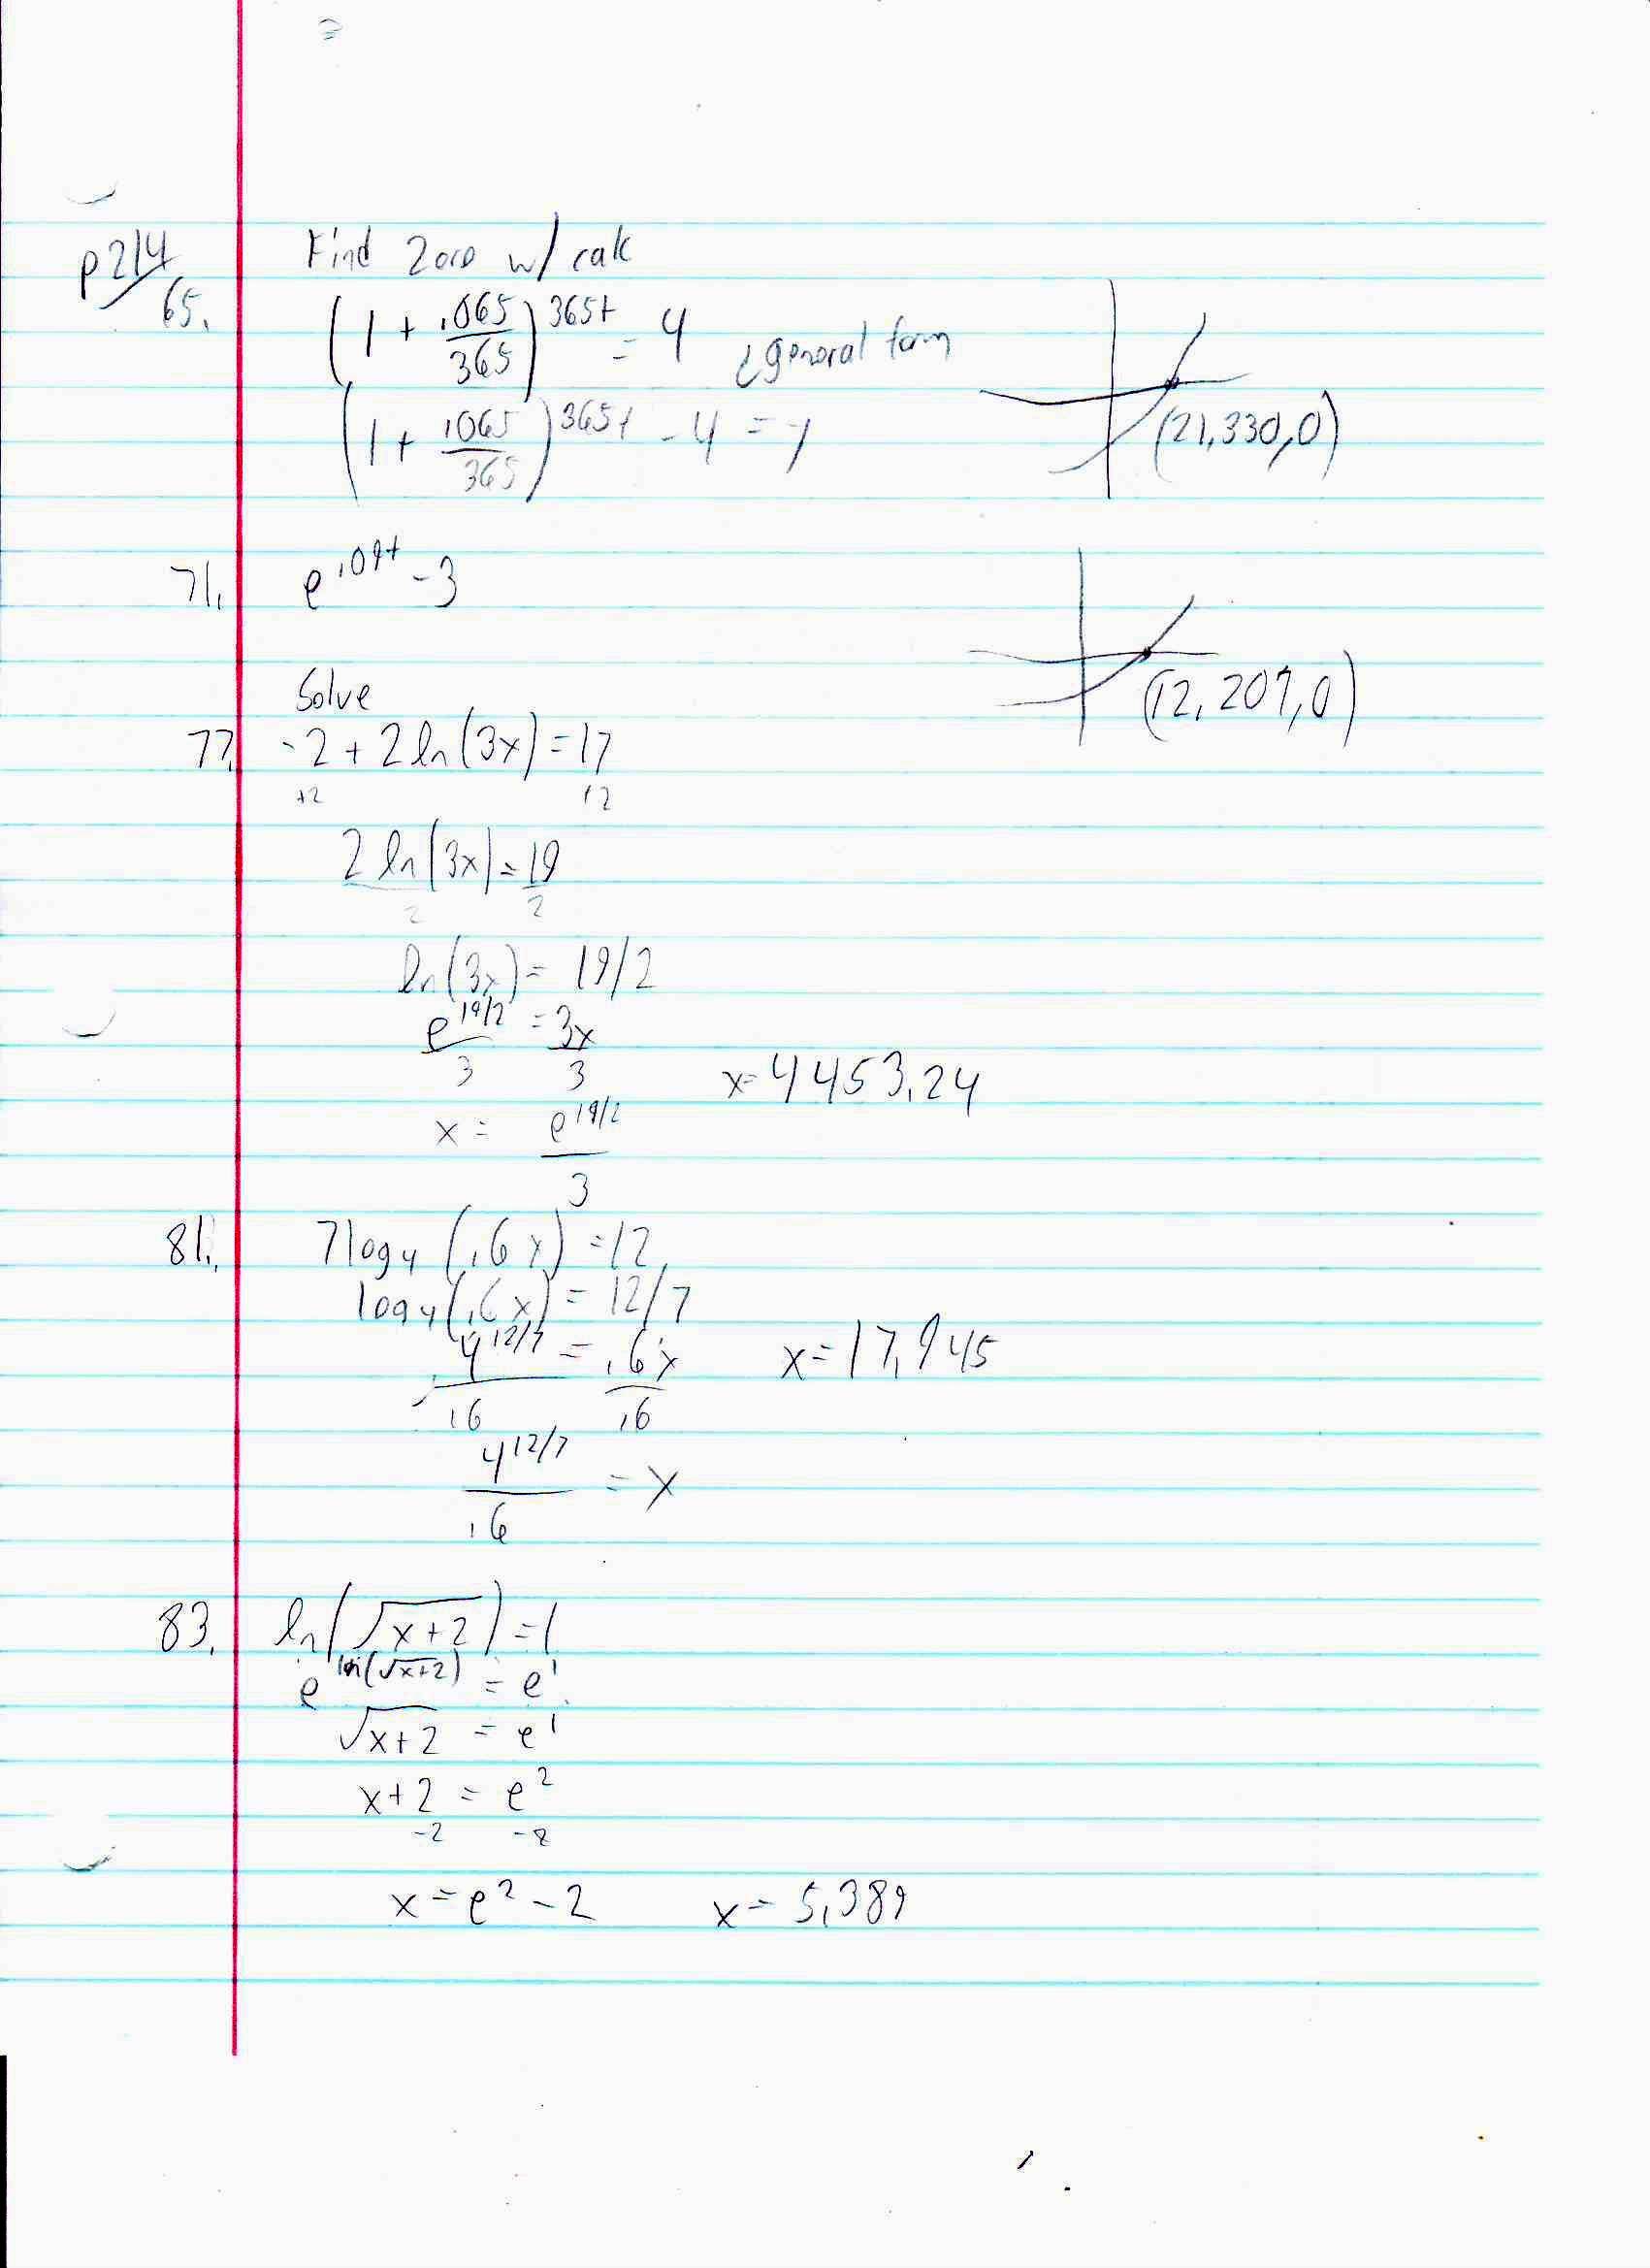 p214
Find Zeros w/ calc
65. (1 + .065/365)^365t = 4 general form
(1 + .065/365)^365t - 4 = y
(21.330,0)
71. e^.09t - 3
(12.207,0)
Solve
77. -2 + 2 ln(3x) = 17
+2 +2
2 ln(3x) = 19
2 2
ln(3x) = 19/2
e^19/2 = 3x
3 3
x = 4453.24
x = e^19/2
3
81. 7log₄(.6x) = 12
log₄(.6x) = 12/7
4^12/7 = .6x x = 17.945
.6 .6
4^12/7 = x
.6
83. ln(√x+2) = 1
e^ln(√x+2) = e^1
√x+2 = e^1
x+2 = e²
-2 -2
x = e² - 2 x = 5.389